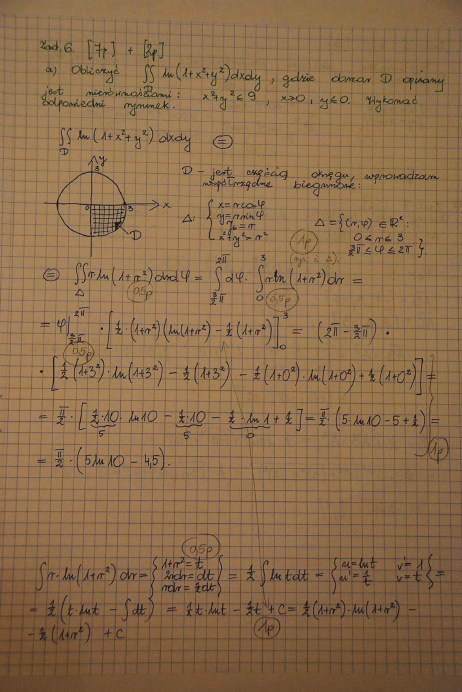 Zad. 6. [7p] + [2p]
a) Obliczyć ∬ ln(1+x²+y²)dxdy, gdzie obszar D opisany
jest nierównościami: x²+y² ≤ 9, x≥0, y≤0. Wykonać
odpowiedni rysunek.
∬_D ln(1+x²+y²) dxdy ⊜
y
3
0 3 x
D
D - jest częścią okręgu, wprowadzam
współrzędne biegunowe:
Δ: { x=r cos φ
y=r sin φ
J=r
x²+y²=r²
Δ={(r,φ) ∈ R²:
0≤r≤3
3/2π ≤ φ ≤ 2π}.
1p
⊜ ∬_Δ r ln(1+r²) drdφ = ∫_{3/2π}^{2π} dφ · ∫_0^3 r ln(1+r²) dr =
0,5p 0,5p
= φ|_{3/2π}^{2π} · [½·(1+r²)(ln(1+r²) - ½(1+r²)]_0^3 = (2π - 3/2π) ·
0,5p
· [½(1+3²)·ln(1+3²) - ½(1+3²) - ½(1+0²)·ln(1+0²)+½(1+0²)] =
= π/2 · [½·10·ln10 - ½·10 - ½·ln1 + ½] = π/2·(5·ln10-5+½) =
5 5 0
1p
= π/2 · (5ln10 - 4,5).
0,5p
∫r·ln(1+r²) dr = {1+r²=t
2rdr=dt
rdr=½dt} = ½ ∫lnt dt = {u=lnt v'=1
u'=1/t v=t} =
= ½(t·lnt - ∫dt) = ½t·lnt - ½t + C = ½(1+r²)·ln(1+r²) -
- ½(1+r²) + C
1p